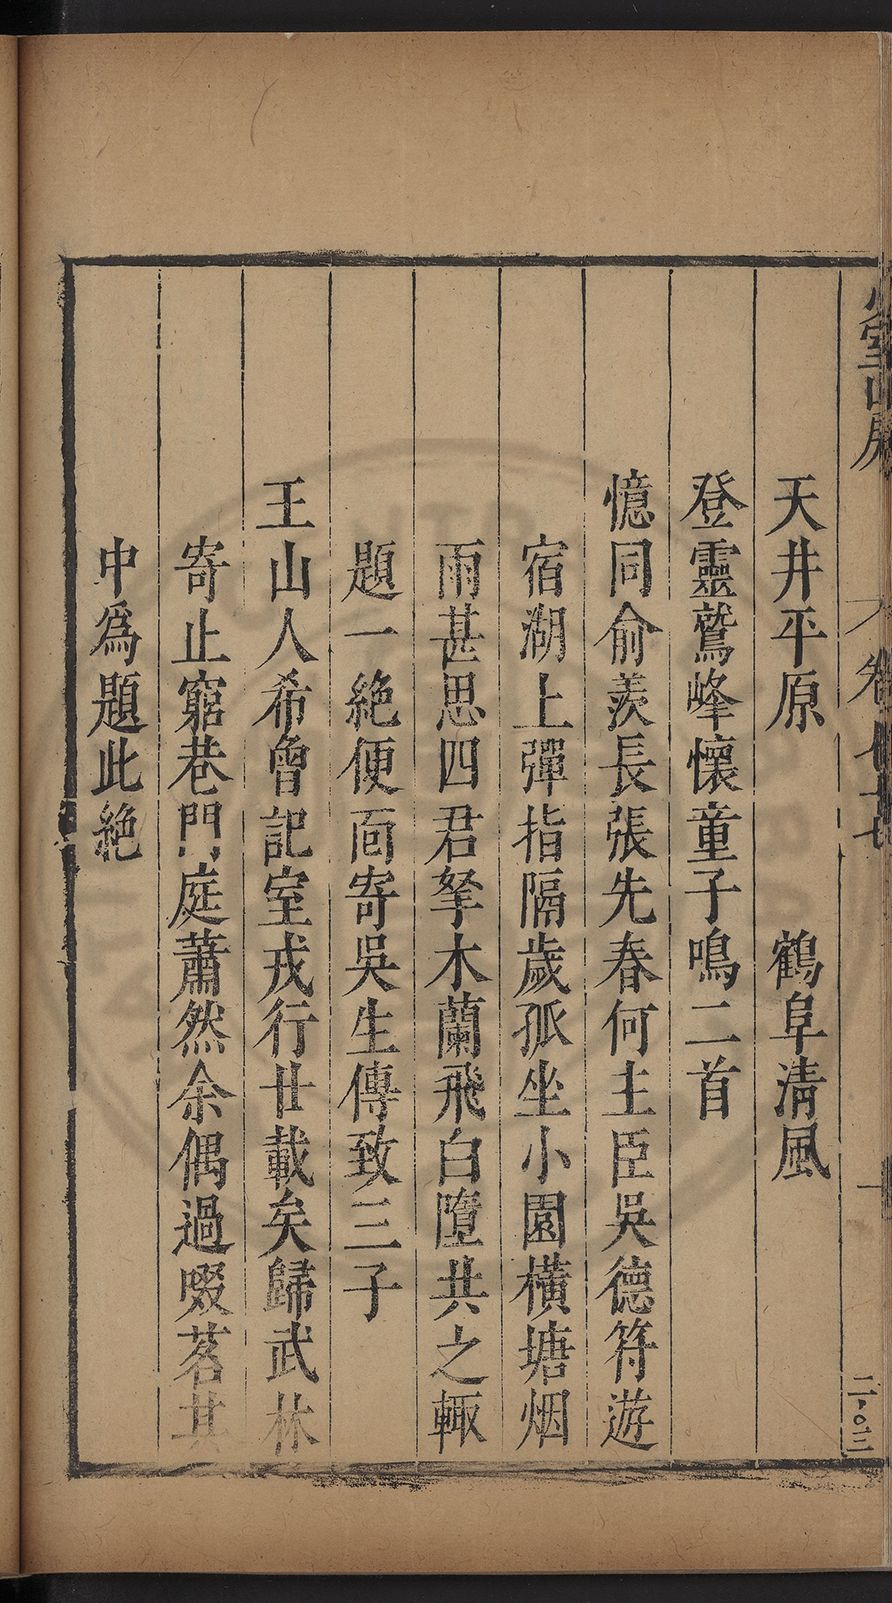 少室山房
卷七十七
天井平原　鶴阜清風
登靈鷲峰懷童子鳴二首
憶同俞羨長張先春何主臣吳德符遊
宿湖上彈指隔歲孤坐小園橫塘烟
雨甚思四君拏木蘭飛白墮共之輙
題一絶便靣寄吳生傳致三子
王山人希曾記室戎行廿載矣歸武林
寄止窮巷門庭蕭然余偶過啜茗其
中爲題此絶